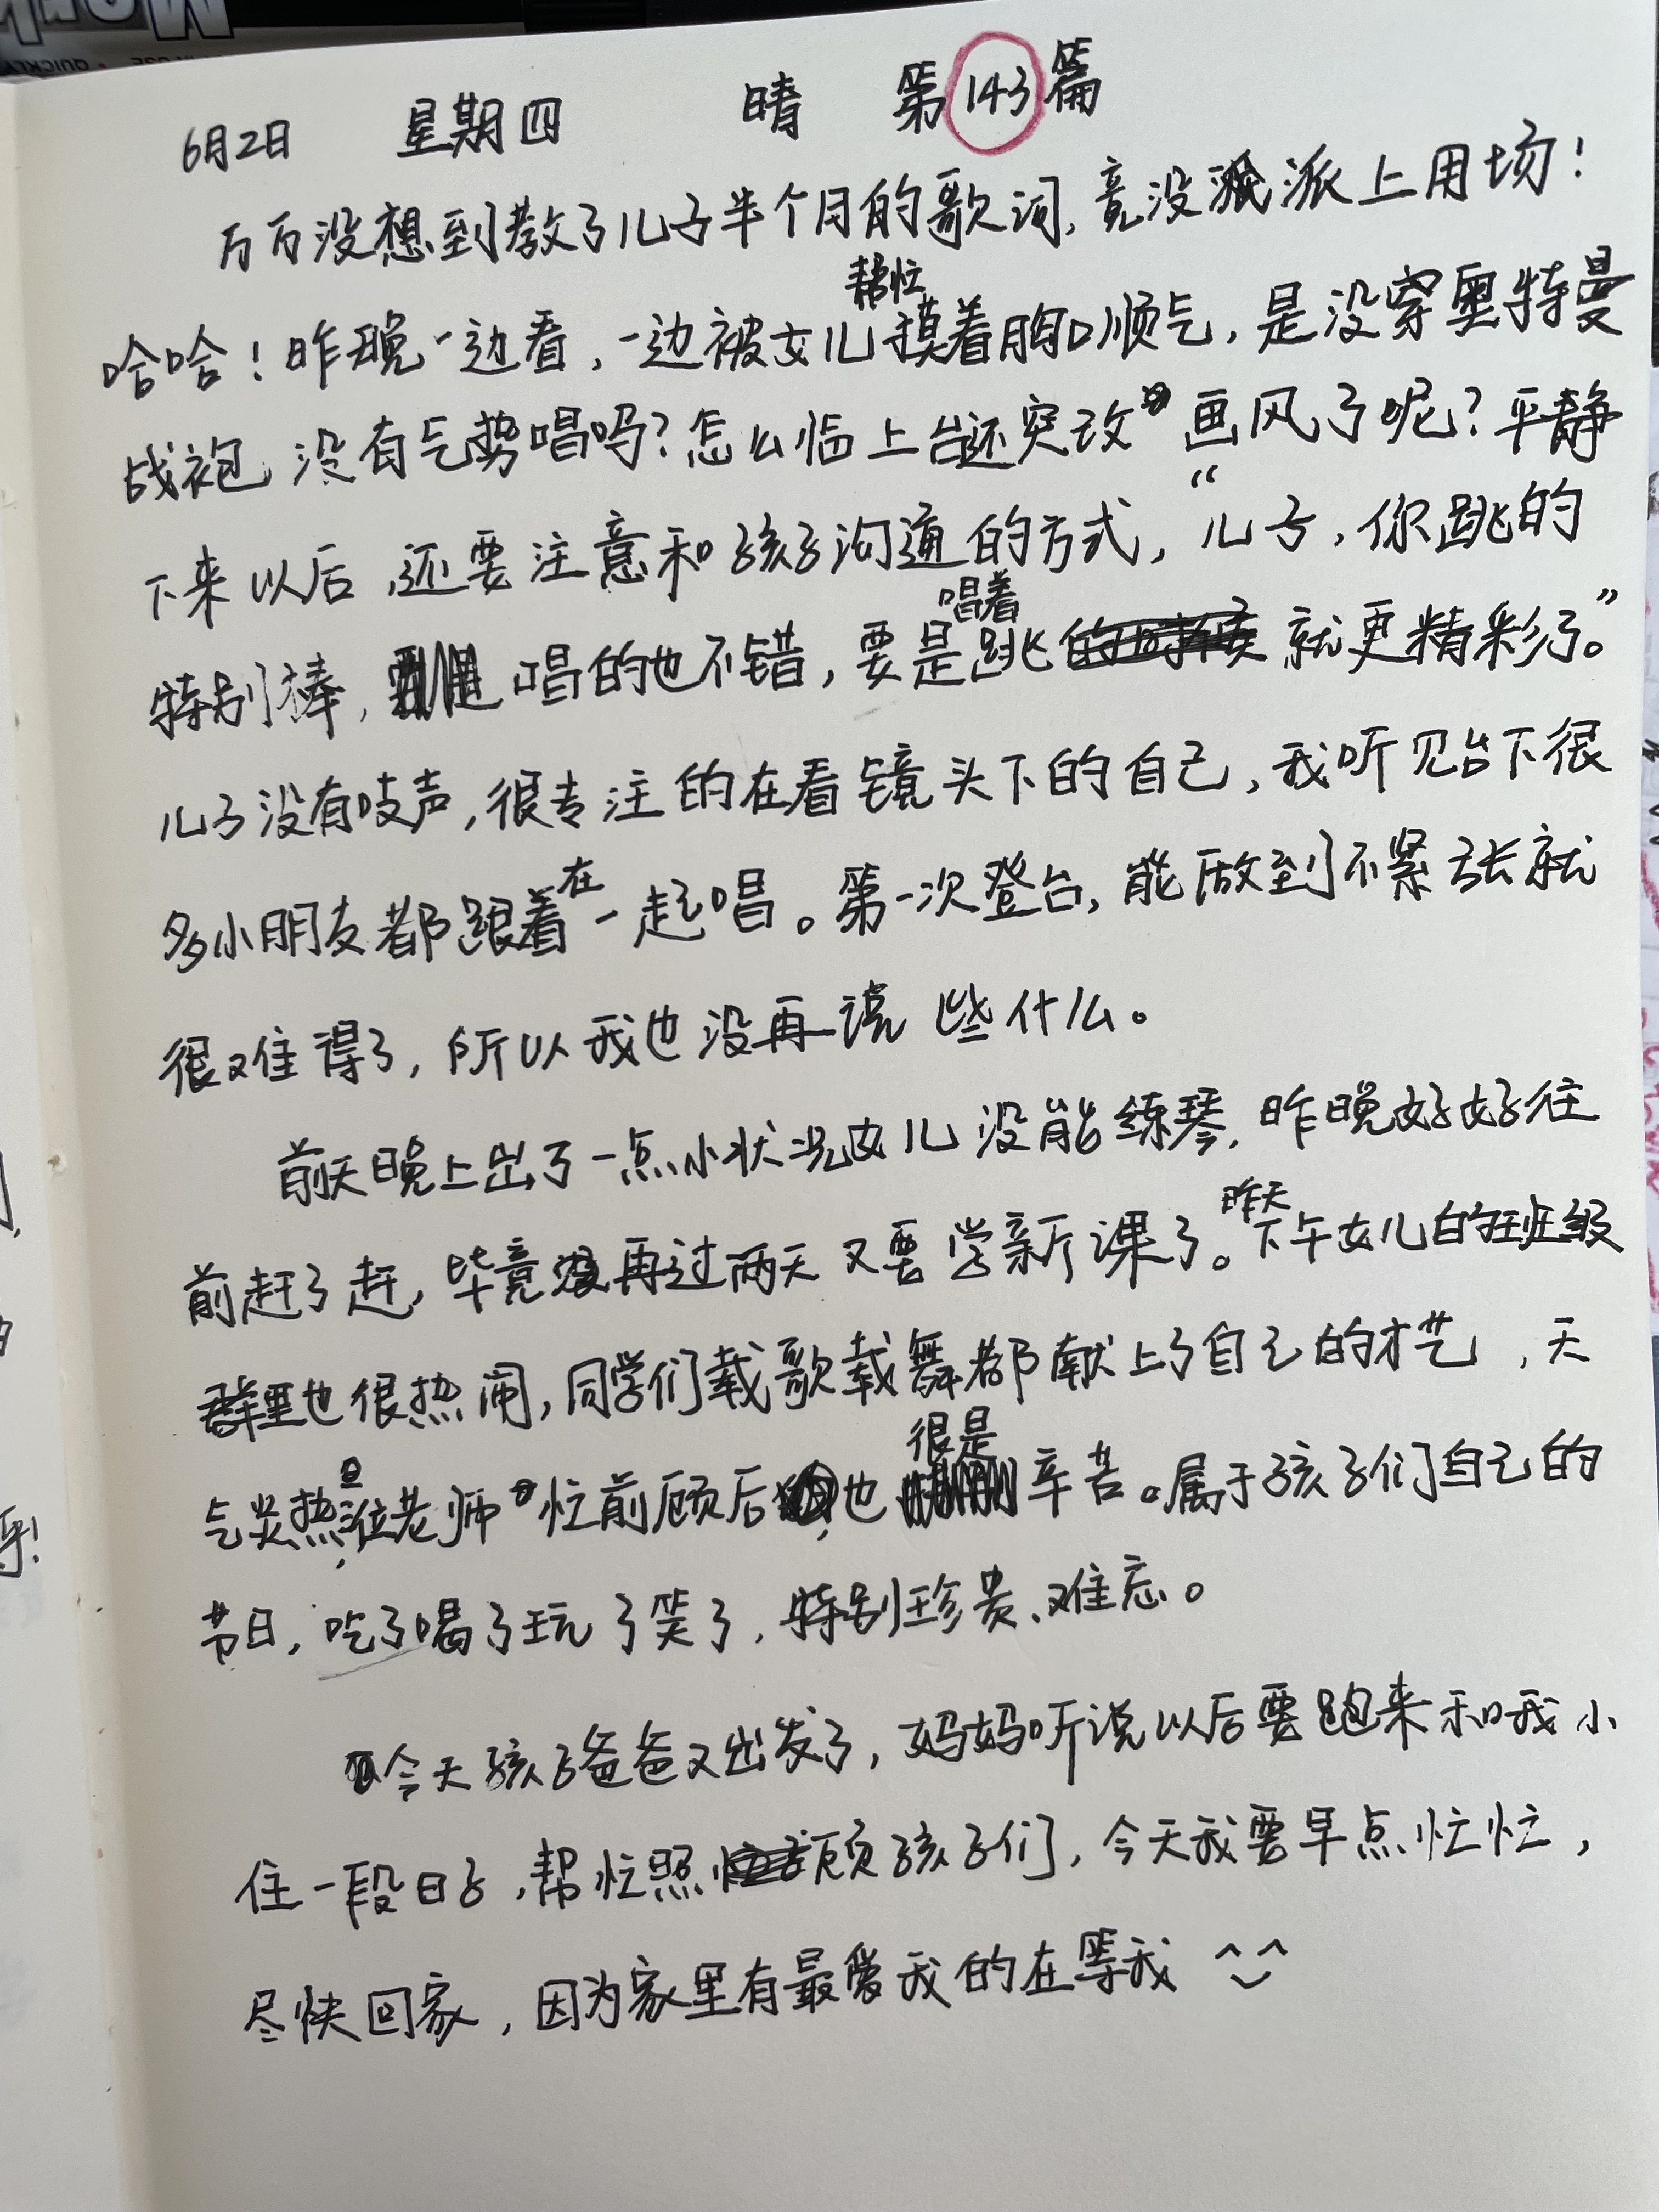 6月2日 星期四 晴 第143篇
万万没想到教了儿子半个月的歌词,竟没派上用场!
哈哈!昨晚一边看,一边被女儿帮忙摸着胸口顺气,是没穿奥特曼
战袍 没有气势唱吗?怎么临上台还突改画风了呢?平静
下来以后,还要注意和孩子沟通的方式,“儿子,你跳的
特别棒,唱的也不错,要是唱着跳就更精彩了。”
儿子没有吱声,很专注的在看镜头下的自己,我听见台下很
多小朋友都跟着在一起唱。第一次登台,能做到不紧张就
很难得了,所以我也没再说些什么。
前天晚上出了一点小状况女儿没能练琴,昨晚好好往
前赶了赶,毕竟再过两天又要学新课了。昨天下午女儿的班级
群里也很热闹,同学们载歌载舞都献上了自己的才艺,天
气炎热,老师忙前顾后,也很是辛苦。属于孩子们自己的
节日,吃了喝了玩了笑了,特别珍贵、难忘。
今天孩子爸爸又出发了,妈妈听说以后要跑来和我小
住一段日子,帮忙照顾孩子们,今天我要早点忙忙,
尽快回家,因为家里有最爱我的在等我 ^_^
QUICKLY